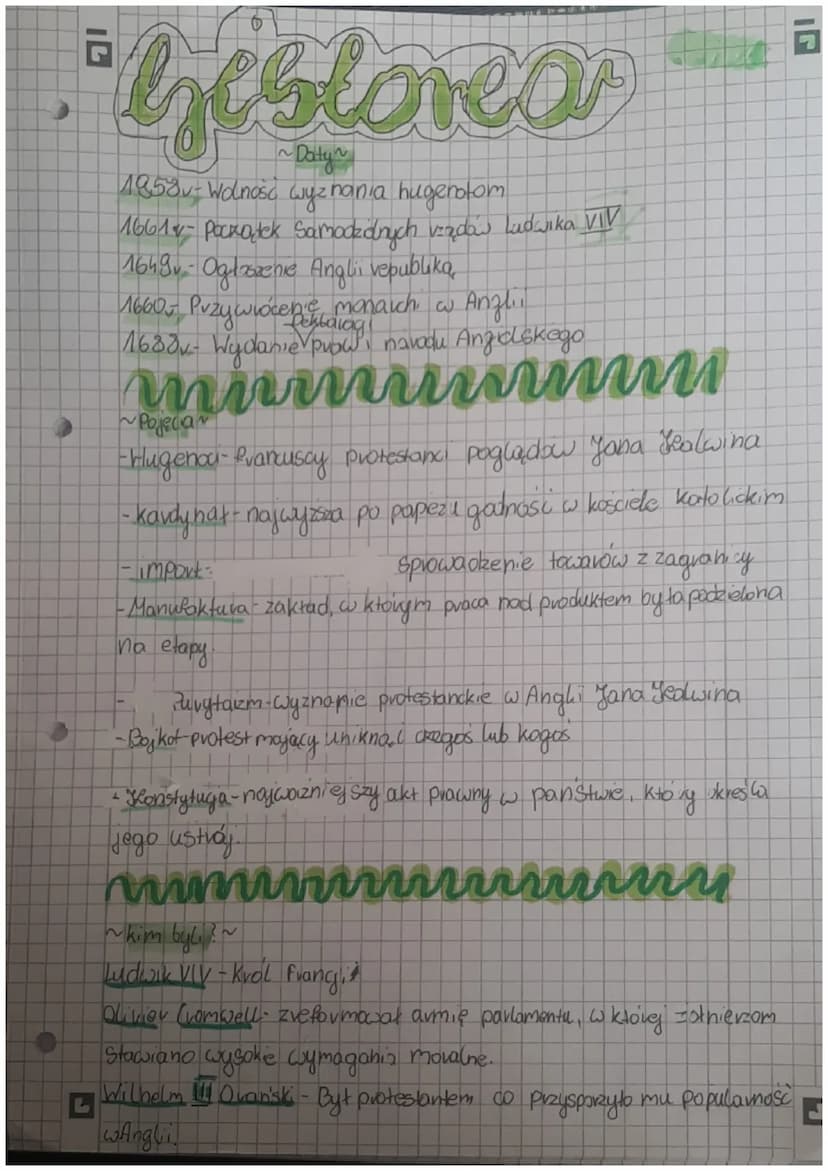 Historia
~Daty~
1858r-Wolność wyznania hugenotom
1661r- Początek Samodzilnych rządów Ludwika VIV
1649r.- Ogłoszenie Angli republiką
1660r- Przywrócenie monarchi w Anglii
deklaracji
1688r- Wydanie praw i narodu Angielskego
~Pojęcia~
-Hugenoci- francuscy protestanci poglądów Jana Kalwina
-kardynał-najwyższa po papieżu godność w kościele katolickim
-import- sprowadzenie towarów z zagranicy
-Manufaktura- zakład, w którym praca nad produktem była podzielona
na etapy.
- Purytaizm-wyznanie protestanckie w Angli Jana Kalwina
-Bojkot-protest mający uniknąć czegoś lub kogoś
- Konstytucja-najważniejszy akt prawny w państwie, który określa
jego ustrój.
~kim byli?~
Ludwik VIV - Król Francji
Olivier Cromwell- zreformował armię parlamentu, w której żołnierzom
stawiano wysokie wymagania moralne.
Wilhelm III Orański - Był protestantem co przysporzyło mu popularność
w Angli.